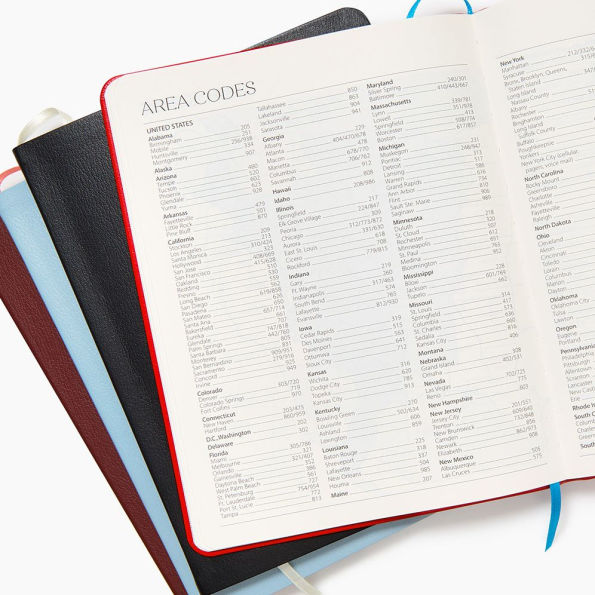 AREA CODES
UNITED STATES
Alabama
Birmingham 205
Mobile 251
Huntsville 256/938
Montgomery 334
Alaska 907
Arizona
Tempe 480
Tucson 520
Phoenix 602
Glendale 623
Yuma 928
Arkansas
Fayetteville 479
Little Rock 501
Pine Bluff 870
California
Stockton 209
Los Angeles 213
Santa Monica 310/424
Hollywood 323
San Jose 408/669
San Francisco 415/628
Oakland 510
Redding 530
Fresno 559
Long Beach 562
San Diego 619/858
Pasadena 626
San Mateo 650
Santa Ana 657/714
Bakersfield 661
Eureka 707
Glendale 747/818
Palm Springs 442/760
Santa Barbara 805
Monterey 831
San Bernardino 909/951
Sacramento 279/916
Concord 925
Irvine 949
Colorado
Denver 303/720
Colorado Springs 719
Fort Collins 970
Connecticut
New Haven 203/475
Hartford 860/959
D.C. Washington 202
Delaware 302
Florida
Miami 305/786
Melbourne 321
Orlando 321/407
Gainesville 352
Daytona Beach 386
West Palm Beach 561
St. Petersburg 727
Ft. Lauderdale 754/954
Port St. Lucie 772
Tampa 813
Tallahassee 850
Lakeland 863
Jacksonville 904
Sarasota 941
Georgia
Albany 229
Atlanta 404/470/678
Macon 478
Marietta 678/770
Columbus 706/762
Savannah 912
Hawaii 808
Idaho 208/986
Illinois
Springfield 217
Elk Grove Village 224/847
Peoria 309
Chicago 312/773/872
Aurora 331/630
East St. Louis 618
Cicero 708
Rockford 779/815
Indiana
Gary 219
Ft. Wayne 260
Indianapolis 317/463
South Bend 574
Lafayette 765
Evansville 812/930
Iowa
Cedar Rapids 319
Des Moines 515
Davenport 563
Ottumwa 641
Sioux City 712
Kansas
Wichita 316
Dodge City 620
Topeka 785
Kansas City 913
Kentucky
Bowling Green
Louisville 502
Ashland 606
Lexington 859
Louisiana
Baton Rouge 225
Shreveport 318
Lafayette 337
New Orleans 504
Houma 985
Maine 207
Maryland
Silver Spring 240/301
Baltimore 410/443/667
Massachusetts
Lynn 339/781
Lowell 351/978
Springfield 413
Worcester 508/774
Boston 617/857
Michigan
Muskegon 231
Pontiac 248/947
Detroit 313
Lansing 517
Warren 586
Grand Rapids 616
Ann Arbor 734
Flint 810
Sault Ste. Marie 906
Saginaw 989
Minnesota
Duluth 218
St. Cloud 320
Rochester 507
Minneapolis 612
St. Paul 651
Medina 763
Bloomington 952
Mississippi
Biloxi 228
Jackson 601/769
Tupelo 662
Missouri
St. Louis 314
Springfield 417
Columbia 573
St. Charles 636
Sedalia 660
Kansas City 816
Montana 406
Nebraska
Grand Island 308
Omaha 402/531
Nevada
Las Vegas 702/725
Reno 775
New Hampshire 603
New Jersey
Jersey City 201/551
Trenton 609/640
New Brunswick 732/848
Camden 856
Newark 862/973
Elizabeth 908
New Mexico
Albuquerque 505
Las Cruces 575
New York
Manhattan
Syracuse
Bronx, Brooklyn, Queens,
Staten Island
Long Island
Nassau County
Albany
Rochester
Binghamton
Long Island
Suffolk County
Buffalo
Poughkeepsie
Yonkers
New York City (cellular,
pagers, voice mail)
North Carolina
Rocky Mount
Greensboro
Charlotte
Asheville
Fayetteville
Raleigh
North Dakota
Ohio
Cleveland
Akron
Cincinnati
Toledo
Lorain
Columbus
Marion
Dayton
Oklahoma
Oklahoma City
Tulsa
Lawton
Oregon
Eugene
Portland
Pennsylvania
Philadelphia
Pittsburgh
Allentown
Scranton